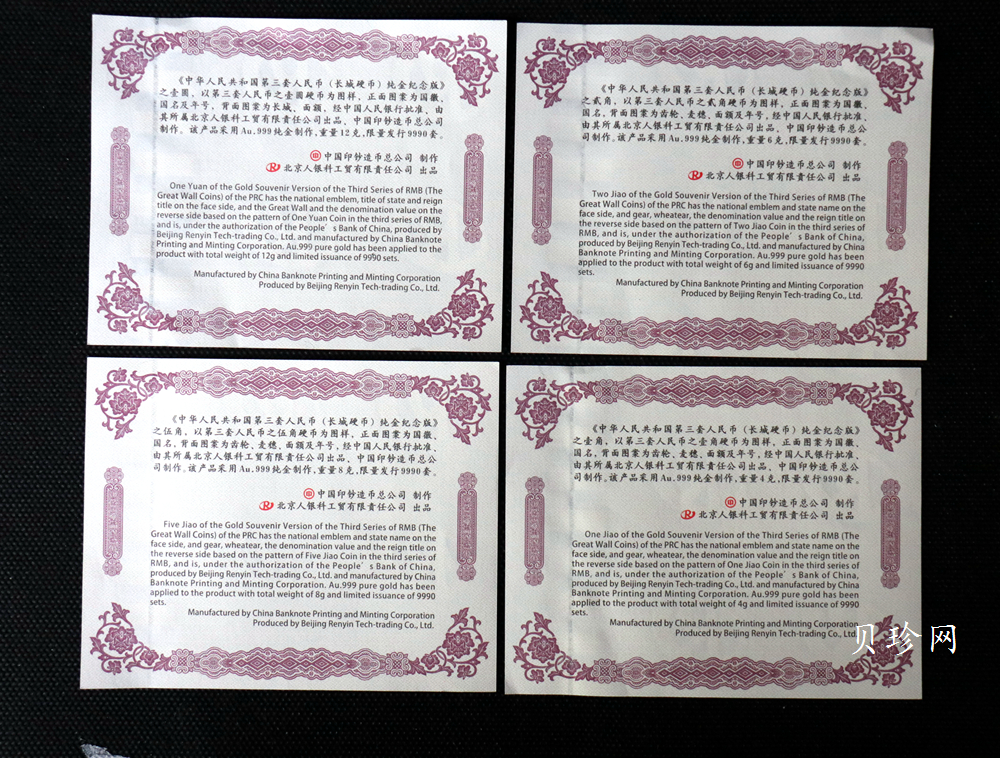 《中华人民共和国第三套人民币（长城硬币）纯金纪念版》
之壹圆，以第三套人民币之壹圆硬币为图样，正面图案为国徽、
国名及年号，背面图案为长城、面额，经中国人民银行批准，由
其所属北京人银科工贸有限责任公司出品、中国印钞造币总公司
制作。该产品采用Au.999纯金制作，重量12克，限量发行9990套。
中国印钞造币总公司 制作
北京人银科工贸有限责任公司 出品
One Yuan of the Gold Souvenir Version of the Third Series of RMB (The
Great Wall Coins) of the PRC has the national emblem, title of state and reign
title on the face side, and the Great Wall and the denomination value on the
reverse side based on the pattern of One Yuan Coin in the third series of RMB,
and is, under the authorization of the People's Bank of China, produced by
Beijing Renyin Tech-trading Co., Ltd. and manufactured by China Banknote
Printing and Minting Corporation. Au.999 pure gold has been applied to the
product with total weight of 12g and limited issuance of 9990 sets.
Manufactured by China Banknote Printing and Minting Corporation
Produced by Beijing Renyin Tech-trading Co., Ltd.
《中华人民共和国第三套人民币（长城硬币）纯金纪念版》
之贰角，以第三套人民币之贰角硬币为图样，正面图案为国徽、
国名，背面图案为齿轮、麦穗、面额及年号，经中国人民银行批准，
由其所属北京人银科工贸有限责任公司出品、中国印钞造币总公
司制作。该产品采用Au.999纯金制作，重量6克，限量发行9990套。
中国印钞造币总公司 制作
北京人银科工贸有限责任公司 出品
Two Jiao of the Gold Souvenir Version of the Third Series of RMB (The
Great Wall Coins) of the PRC has the national emblem and state name on the
face side, and gear, wheatear, the denomination value and the reign title on
the reverse side based on the pattern of Two Jiao Coin in the third series of
RMB, and is, under the authorization of the People's Bank of China,
produced by Beijing Renyin Tech-trading Co., Ltd. and manufactured by China
Banknote Printing and Minting Corporation. Au.999 pure gold has been
applied to the product with total weight of 6g and limited issuance of 9990
sets.
Manufactured by China Banknote Printing and Minting Corporation
Produced by Beijing Renyin Tech-trading Co., Ltd.
《中华人民共和国第三套人民币（长城硬币）纯金纪念版》
之伍角，以第三套人民币之伍角硬币为图样，正面图案为国徽、
国名，背面图案为齿轮、麦穗、面额及年号，经中国人民银行批准，
由其所属北京人银科工贸有限责任公司出品、中国印钞造币总公
司制作。该产品采用Au.999纯金制作，重量8克，限量发行9990套。
中国印钞造币总公司 制作
北京人银科工贸有限责任公司 出品
Five Jiao of the Gold Souvenir Version of the Third Series of RMB (The
Great Wall Coins) of the PRC has the national emblem and state name on the
face side, and gear, wheatear, the denomination value and the reign title on
the reverse side based on the pattern of Five Jiao Coin in the third series of
RMB, and is, under the authorization of the People's Bank of China,
produced by Beijing Renyin Tech-trading Co., Ltd. and manufactured by China
Banknote Printing and Minting Corporation. Au.999 pure gold has been
applied to the product with total weight of 8g and limited issuance of 9990
sets.
Manufactured by China Banknote Printing and Minting Corporation
Produced by Beijing Renyin Tech-trading Co., Ltd.
《中华人民共和国第三套人民币（长城硬币）纯金纪念版》
之壹角，以第三套人民币之壹角硬币为图样，正面图案为国徽、
国名，背面图案为齿轮、麦穗、面额及年号，经中国人民银行批准，
由其所属北京人银科工贸有限责任公司出品、中国印钞造币总公
司制作。该产品采用Au.999纯金制作，重量4克，限量发行9990套。
中国印钞造币总公司 制作
北京人银科工贸有限责任公司 出品
One Jiao of the Gold Souvenir Version of the Third Series of RMB (The
Great Wall Coins) of the PRC has the national emblem and state name on the
face side, and gear, wheatear, the denomination value and the reign title on
the reverse side based on the pattern of One Jiao Coin in the third series of
RMB, and is, under the authorization of the People's Bank of China,
produced by Beijing Renyin Tech-trading Co., Ltd. and manufactured by China
Banknote Printing and Minting Corporation. Au.999 pure gold has been
applied to the product with total weight of 4g and limited issuance of 9990
sets.
Manufactured by China Banknote Printing and Minting Corporation
Produced by Beijing Renyin Tech-trading Co., Ltd.
贝珍网